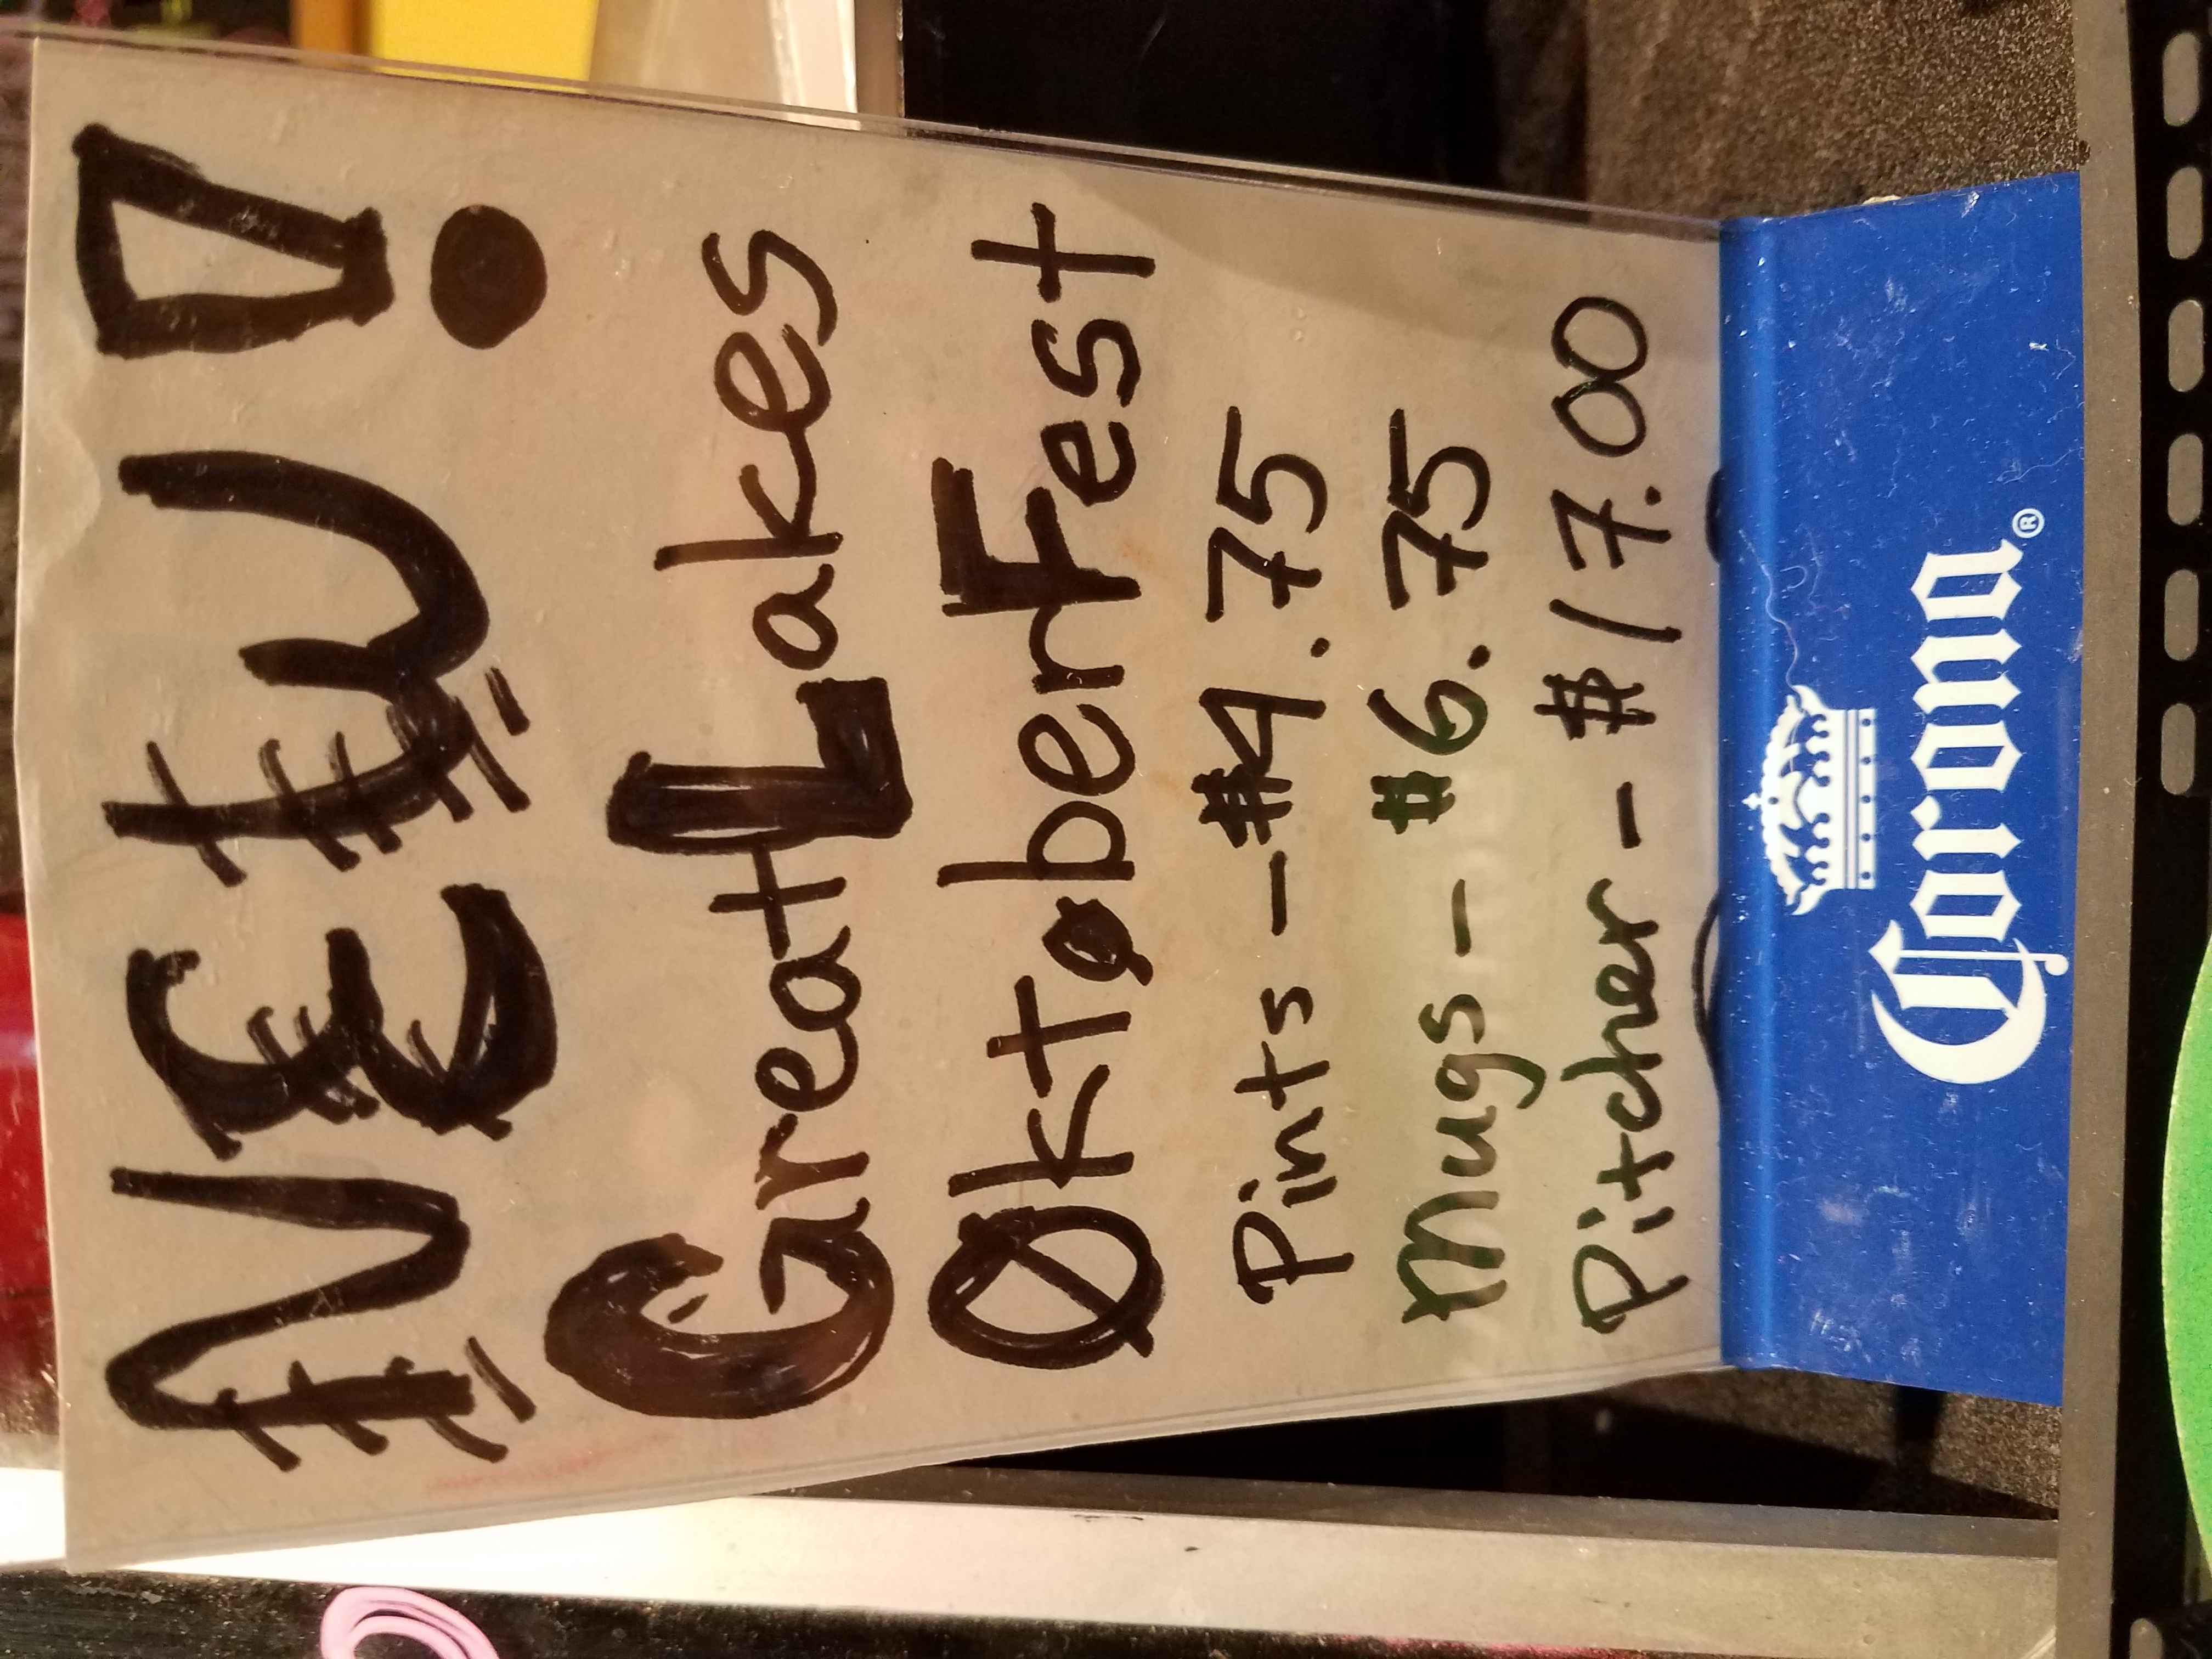 NEW!
Great Lakes
ØktøberFest
Pints - $4.75
Mugs - $6.75
Pitcher - $17.00
Corona®